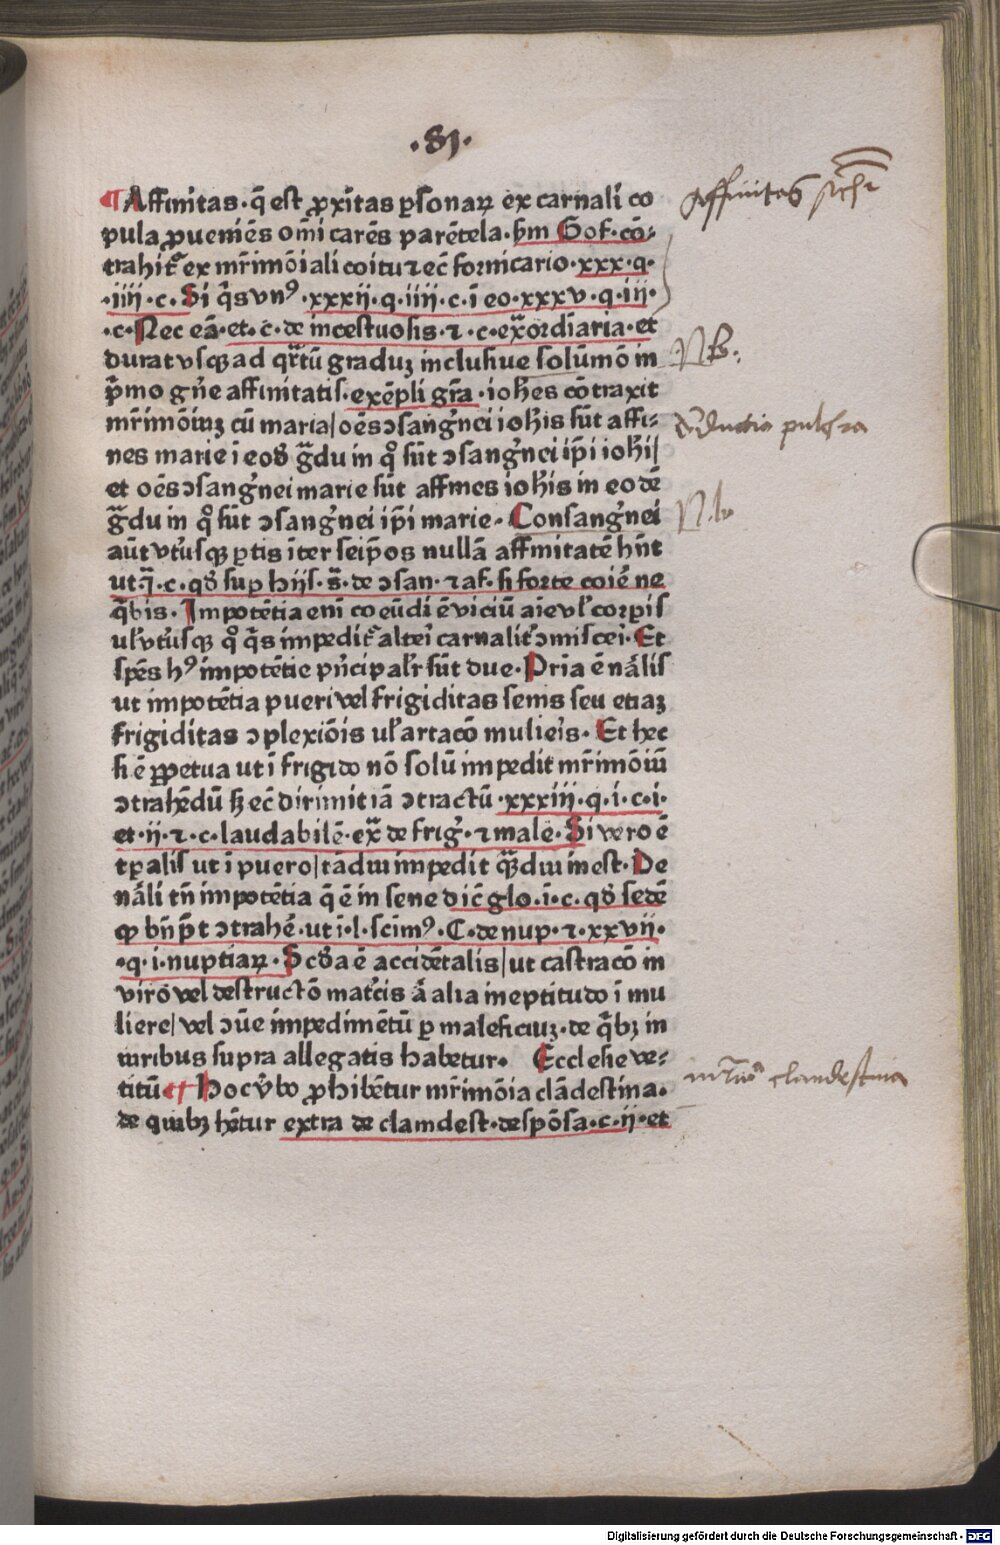 ·81·
¶Affinitas·q̄ est ꝓxītas ꝑsonaꝝ ex carnali co
pula ꝓueniēs om̄i carēs parētela·ẜm Gof·cō⸗
trahit᷑ ex mr̄imōiali coitu ⁊ ec̄ fornicario·xxx·q·
·iiii·c·Si q̄s vnꝰ·xxxii·q·iiii·c·ī eo·xxxv·q·iii·
·c·Nec eā·et·c̄·de incestuosis·⁊·c·ex̄ordiaria·et
durat vsqꝫ ad qr̄tū graduꝫ inclusiue solūmō in
p̄mo gn̄e affinitatis·exēpli gr̄a·ioh̄es cōtraxit
mr̄imōiuꝫ cū maria/oēs ↄsang̓nei ioh̄is sūt affi⸗
nes marie ī eod̄ ḡdu in q̊ sūt ↄsang̓nei ip̄i ioh̄i/
et oēs ↄsang̓nei marie sūt affines ioh̄is in eodē
ḡdu in q̊ sūt ↄsang̓nei ip̄i marie·Consang̓nei
aūt vtr̓usqꝫ ꝑtis īter seip̄os nullā affinitatē hn̄t
ut·q̄·c·qd̄ suꝑ hijs·s̄·de ↄsan·⁊ af·si forte coiē ne
q̄bis·Impotētia eni coeūdi ē viciū aīe vl̓ corꝑis
ul̓ vtr̓usqꝫ q̊ q̄s impedit᷑ altei carnalit᷑ ↄmisceri·Et
spēs hꝰ impotētie pn̓cipal̓r sūt due·Pria ē nālis
ut impotētia pueri vel frigiditas senis seu etiaꝫ
frigiditas ↄplexiōis ul̓ artacō mulieis·Et hec
si ē ꝑpetua ut ī frigido nō solū impedit mr̄imōiū
ↄtrahēdū sꝫ ec̄ dirimit iā ↄtractū·xxxiii·q·i·c·i·
et·ij·⁊·c·laudabilē·ex̄ de frig̓·⁊ male·Si vero ē
tꝑalis ut ī puero/tādiu impedit q̄diu inest·De
nāli tn̄ impotētia q̄ ē in sene dic̄ glo·ī·c·qd̄ sedē
ꝙ bn̄ pn̄t ↄtrahē·ut ī·l·scim̄ꝰ·C·de nup·⁊·xxvii·
·q·i·nuptiaꝝ·Scd̄a ē accidētalis/ut castracō in
viro vel destructō matr̓cis ā alia ineptitudo ī mu
liere/vel ↄūe impedimētū ꝑ maleficiuꝫ·de q̄bꝫ in
iuribus supra allegatis habetur· Ecclesie ve⸗
titū¶ Hoc v̓bo ꝓhibētur mr̄imōia clādestina·
de quibꝫ hētur extra de clandest·despōsa·c·ij·et
Affinitas
NB:
pulchra
Nb
clandestina
Digitalisierung gefördert durch die Deutsche Forschungsgemeinschaft · DFG